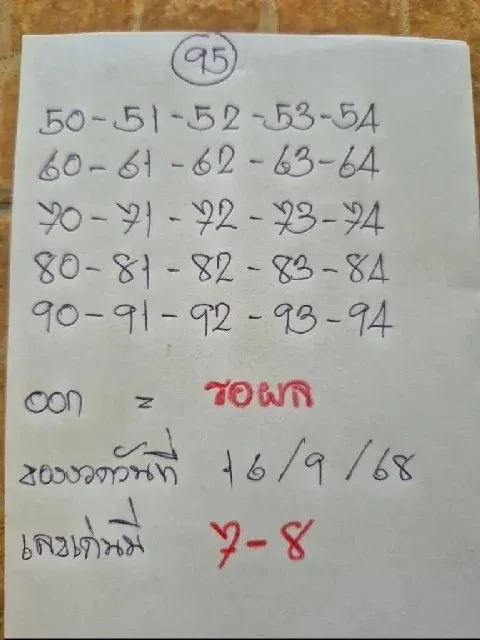 95
50-51-52-53-54
60-61-62-63-64
70-71-72-73-74
80-81-82-83-84
90-91-92-93-94
ออก = รอผล
ของงวดวันที่ 16/9/68
เลขเด่นมี 7-8